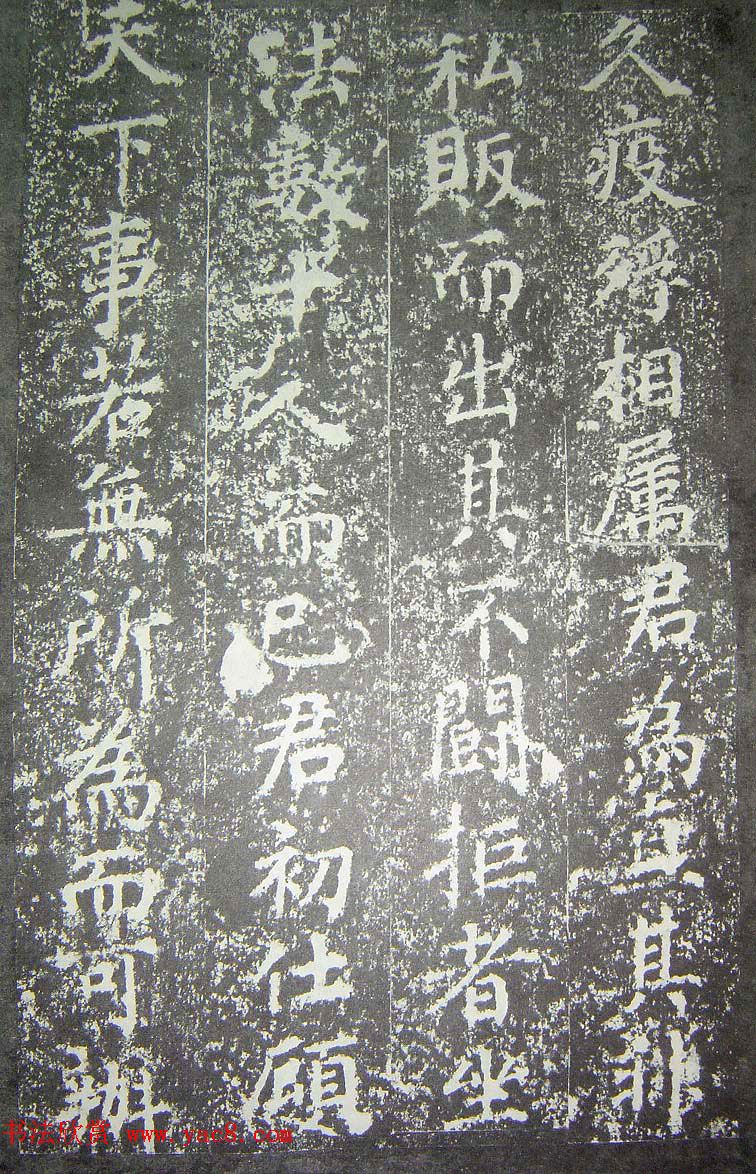 久疫殍相属君為直其非
私販而出其不鬪拒者坐
法數十人而已君初仕顧
天下事若無所為而可辦
书法欣赏 www.yac8.com